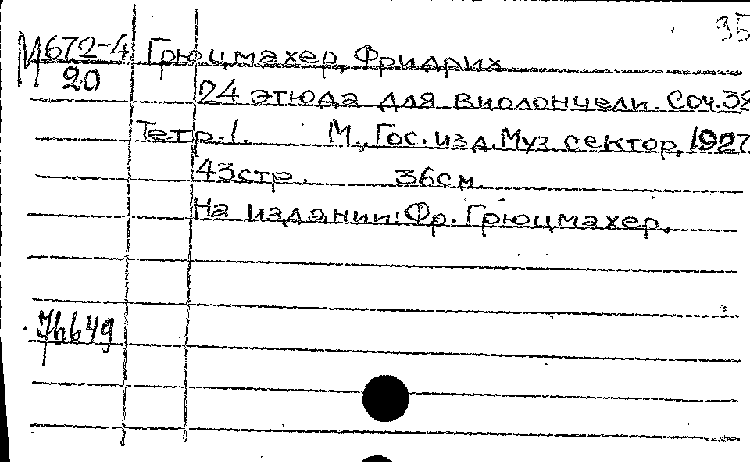 35
М672-4 Грюцмахер, Фридрих
20 24 этюда для виолончели. Соч. 38
Тетр. 1. М., Гос. изд. Муз. сектор, 1927
43стр. 36см.
На издании: Фр. Грюцмахер.